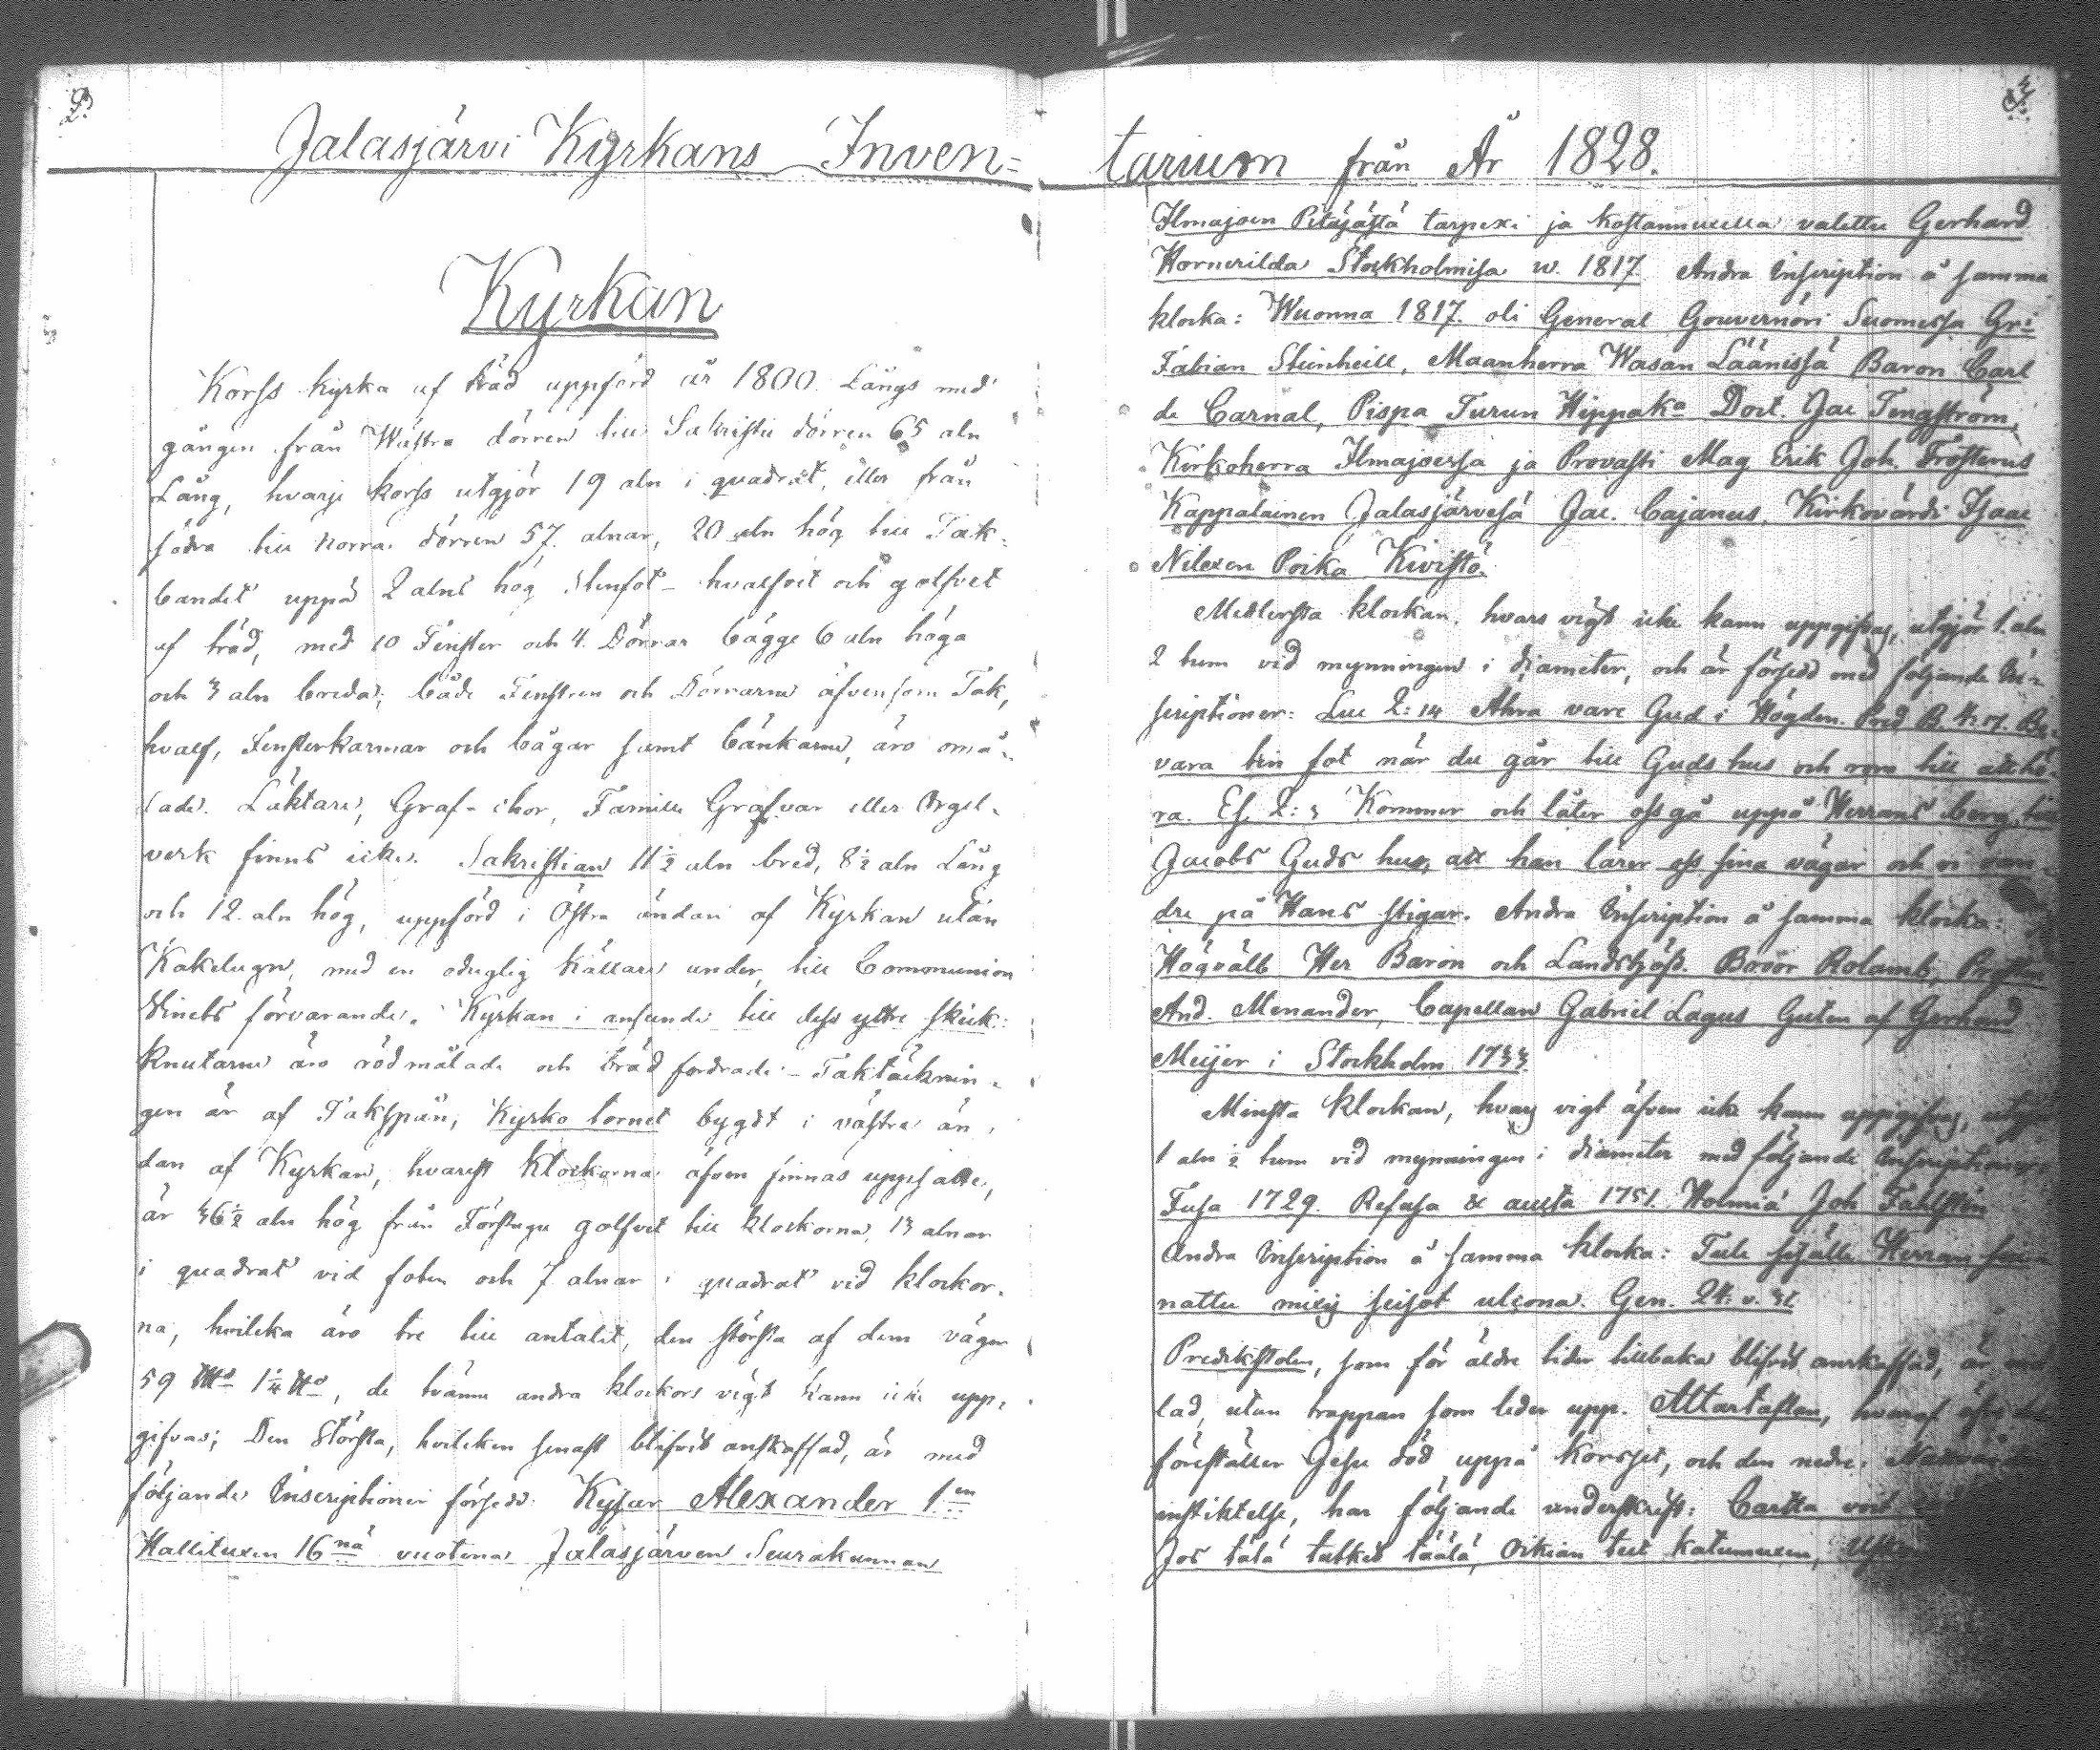 2.
Jalasjärvi Kyrkans Inven=
Kyrkan
Korss kyrka af träd uppförd år 1800. Längs med
gången från Wästra dörren till Sakristie dörren 65 aln
Lång, hvarje korss utgjör 19 aln i quadrat, eller från
södra till norra dörren 57. alnar, 20 aln hög till Tak-
bandet uppå 2 alns hög stenfot - hvalfvet och golfvet
af träd, med 10 Fenster och 4. Dörrar bägge 6 aln höga
och 3 aln breda; både Fenstren och Dörrarne äfvensom Tak,
hvalf, Fensterkarmar och bågar samt bänkarne, äro omå-
lade. Läktare, Graf-chor, Famille Grafvar eller Orgel-
verk finns icke. Sakristian 11½ aln bred, 8½ aln Lång
och 12. aln hög, uppförd i Östra ändan af Kyrkan utan
Kakelugn, med en oduglig källare under, till Communion
Vinets förvarande. Kyrkan i anseende till dess yttre skick:
Knutarne äro rödmålade och bräd fordrade - Taktäcknin-
gen är af Takspån, Kyrko tornet bygdt i västra än-
dan af Kyrkan, hvarest klockorna äfven finnas uppsatte,
är 36½ aln hög från Förstugu golfvet till klockorna, 13 alnar
i quadrat vid foten och 7 alnar i quadrat vid klockor-
na, hvilka äro tre till antalet, den största af dem väger
59 1¼ , de tvänne andra klockors vigt kann icke upp-
gifvas; Den Största, hvilken senast blifvit anskaffad, är med
följande Inscriptioner försedd: Kejsar Alexander 1.en
Hallituxen 16na vuotena Jalasjärven Seurakunnan
tarium från År 1828.
Ilmajoen Pitäjästä tarpexi ja kostannuxella valettu Gerhard
Hornerilda Stockholmisa w. 1817 Andra Inscription å samma
klocka: Wuonna 1817. oli General Gouvernöri Suomessa Gr:
Fabian Steinheill, Maanherra Wasan Läänissä Baron Carl
de Carnal, Pispa Turun Hippaka Doct. Jac Tengström,
Kirkoherra Ilmajoessa ja Provasti Mag Erik Joh. Frosterus
Kappalainen Jalasjärvesä Jac. Cajanus, Kirkovärdi Isaac
Nilexen Poika Kivistö.
Medlersta klockan, hvars vigt icke kann uppgifvas, utgjör 1. aln
2 tum vid mynningen i diameter, och är försedd med följande In-
scriptioner: Luc 2:14 Ähra vare Gud i Högden. Pred B. 4:17. Be-
vara tin fot när du går till Guds hus och kom till att hö-
ra. Es. 2:3 Kommer och låter oss gå uppå Herrans berg, till
Jacobs Guds hus, att han lärer oss sina vägar och vi van-
dre på Hans stigar. Andra Inscription å samma klocka:
Högvälb Her Baron och Landshöfd. Broor Rolamb, Prosten
And. Menander, Capellan Gabriel Lagus Guten af Gerhard
Meijer i Stockholm 1733
Minsta klockan, hvars vigt äfven icke kann uppgifvas, utgör
1 aln ½ tum vid mynningen i diameter med följande Inscriptioner:
Fusa 1729. Refusa & aucta 1751. Holmiä Joh Fahlsten
Andra Inscription å samma klocka: Tule sisälle Herran siu-
nattu mixi seisot ulcona. Gen. 24. v. 31
Predikstolen, som för äldre tider tillbaka blifvit anskaffad, är må-
lad, utan trappan som leder upp. Altartaflan, hvaraf öfre
föreställer Jesu död uppå Korsset, och den nedre Nattvard
instiktelse, har följande underskrift: Cartta voit
Jos tätä tutkit täälä, Oikian tiet katumuxen,